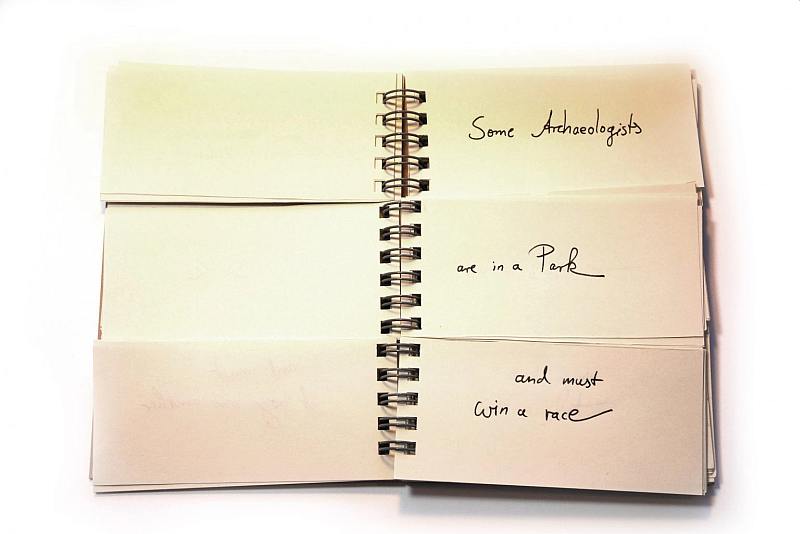 Some Archaeologists
are in a Park
and must
win a race